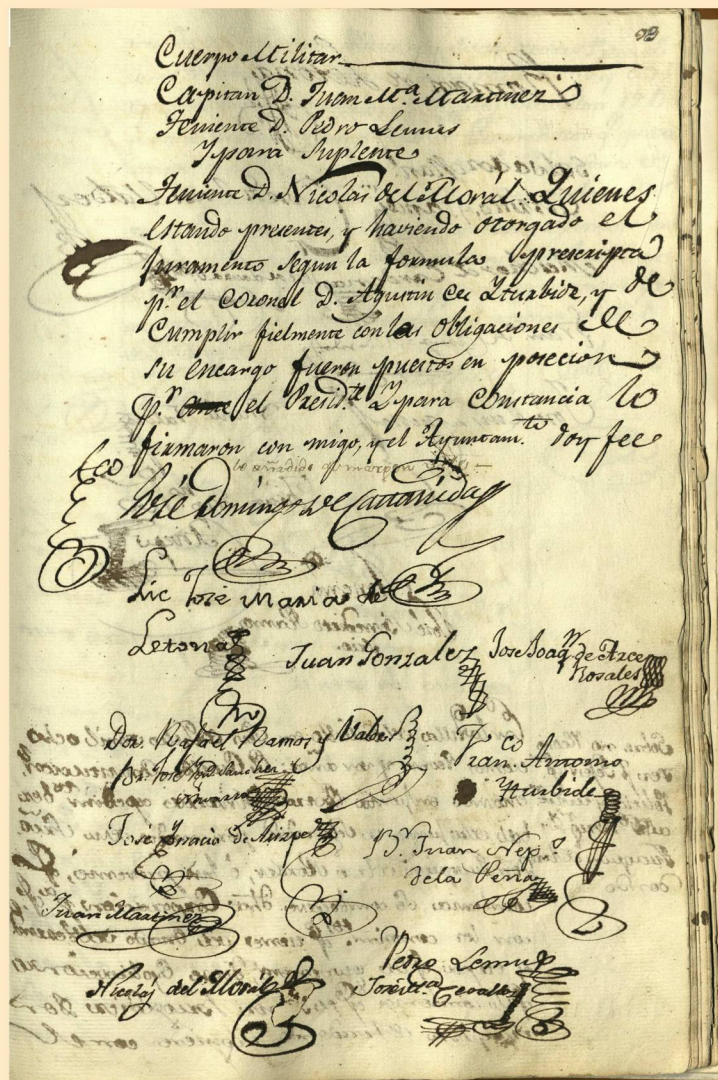 93
Cuerpo Militar
Capitan D. Juan M.ª Martinez
Teniente D. Pedro Lemus
Y para Suplente
Teniente D. Nicolás del Moral. Quienes
estando presentes, y haviendo otorgado el
juramento segun la formula prescripta
p.r el Coronel D. Agustin de Yturbide, y de
Cumplir fielmente con las obligaciones de
su encargo fueron puestos en posecion
p.r ante el Presid.te Y para Constancia lo
firmaron con migo, y el Ayuntam.to doy fee
José Domingo de
Lic José Maria de
Letona
Juan Gonzalez
Jose Joaq.n de Arce
Rosales
Dor. Rafael Ramos y Valdes
Fran.co Antonio
Yturbide
José Ygnacio de
B.r Juan Nep.o
de la Peña
Juan Martinez
Pedro Lemus
Nicolas del Moral